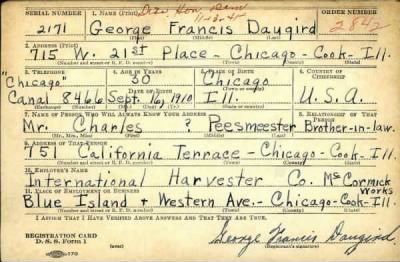 SERIAL NUMBER 1. NAME (Print) Dis. Hon. Dem 11-2-45 ORDER NUMBER
2171 George Francis Daugird 2842
(First) (Middle) (Last)
2. ADDRESS (Print)
715 W. 21st Place - Chicago - Cook - Ill.
(Number and street or R. F. D. number) (Town) (County) (State)
3. TELEPHONE 4. AGE IN YEARS 5. PLACE OF BIRTH 6. COUNTRY OF CITIZENSHIP
"Chicago" 30 Chicago
DATE OF BIRTH
Canal 8466 Sept. 16, 1910 Ill. U.S.A.
7. NAME OF PERSON WHO WILL ALWAYS KNOW YOUR ADDRESS 8. RELATIONSHIP OF THAT PERSON
Mr. Charles ? Peesmeester Brother-in-law.
(Mr., Mrs., Miss) (First) (Middle) (Last)
9. ADDRESS OF THAT PERSON
751 California Terrace - Chicago - Cook - Ill.
(Number and street or R. F. D. number) (Town) (County) (State)
10. EMPLOYER'S NAME
International Harvester Co. McCormick Works
11. PLACE OF EMPLOYMENT OR BUSINESS
Blue Island + Western Ave. - Chicago - Cook - Ill.
(Number and street or R. F. D. number) (Town) (County) (State)
I AFFIRM THAT I HAVE VERIFIED ABOVE ANSWERS AND THAT THEY ARE TRUE.
REGISTRATION CARD
D. S. S. Form 1 (over) George Francis Daugird
(Registrant's signature)